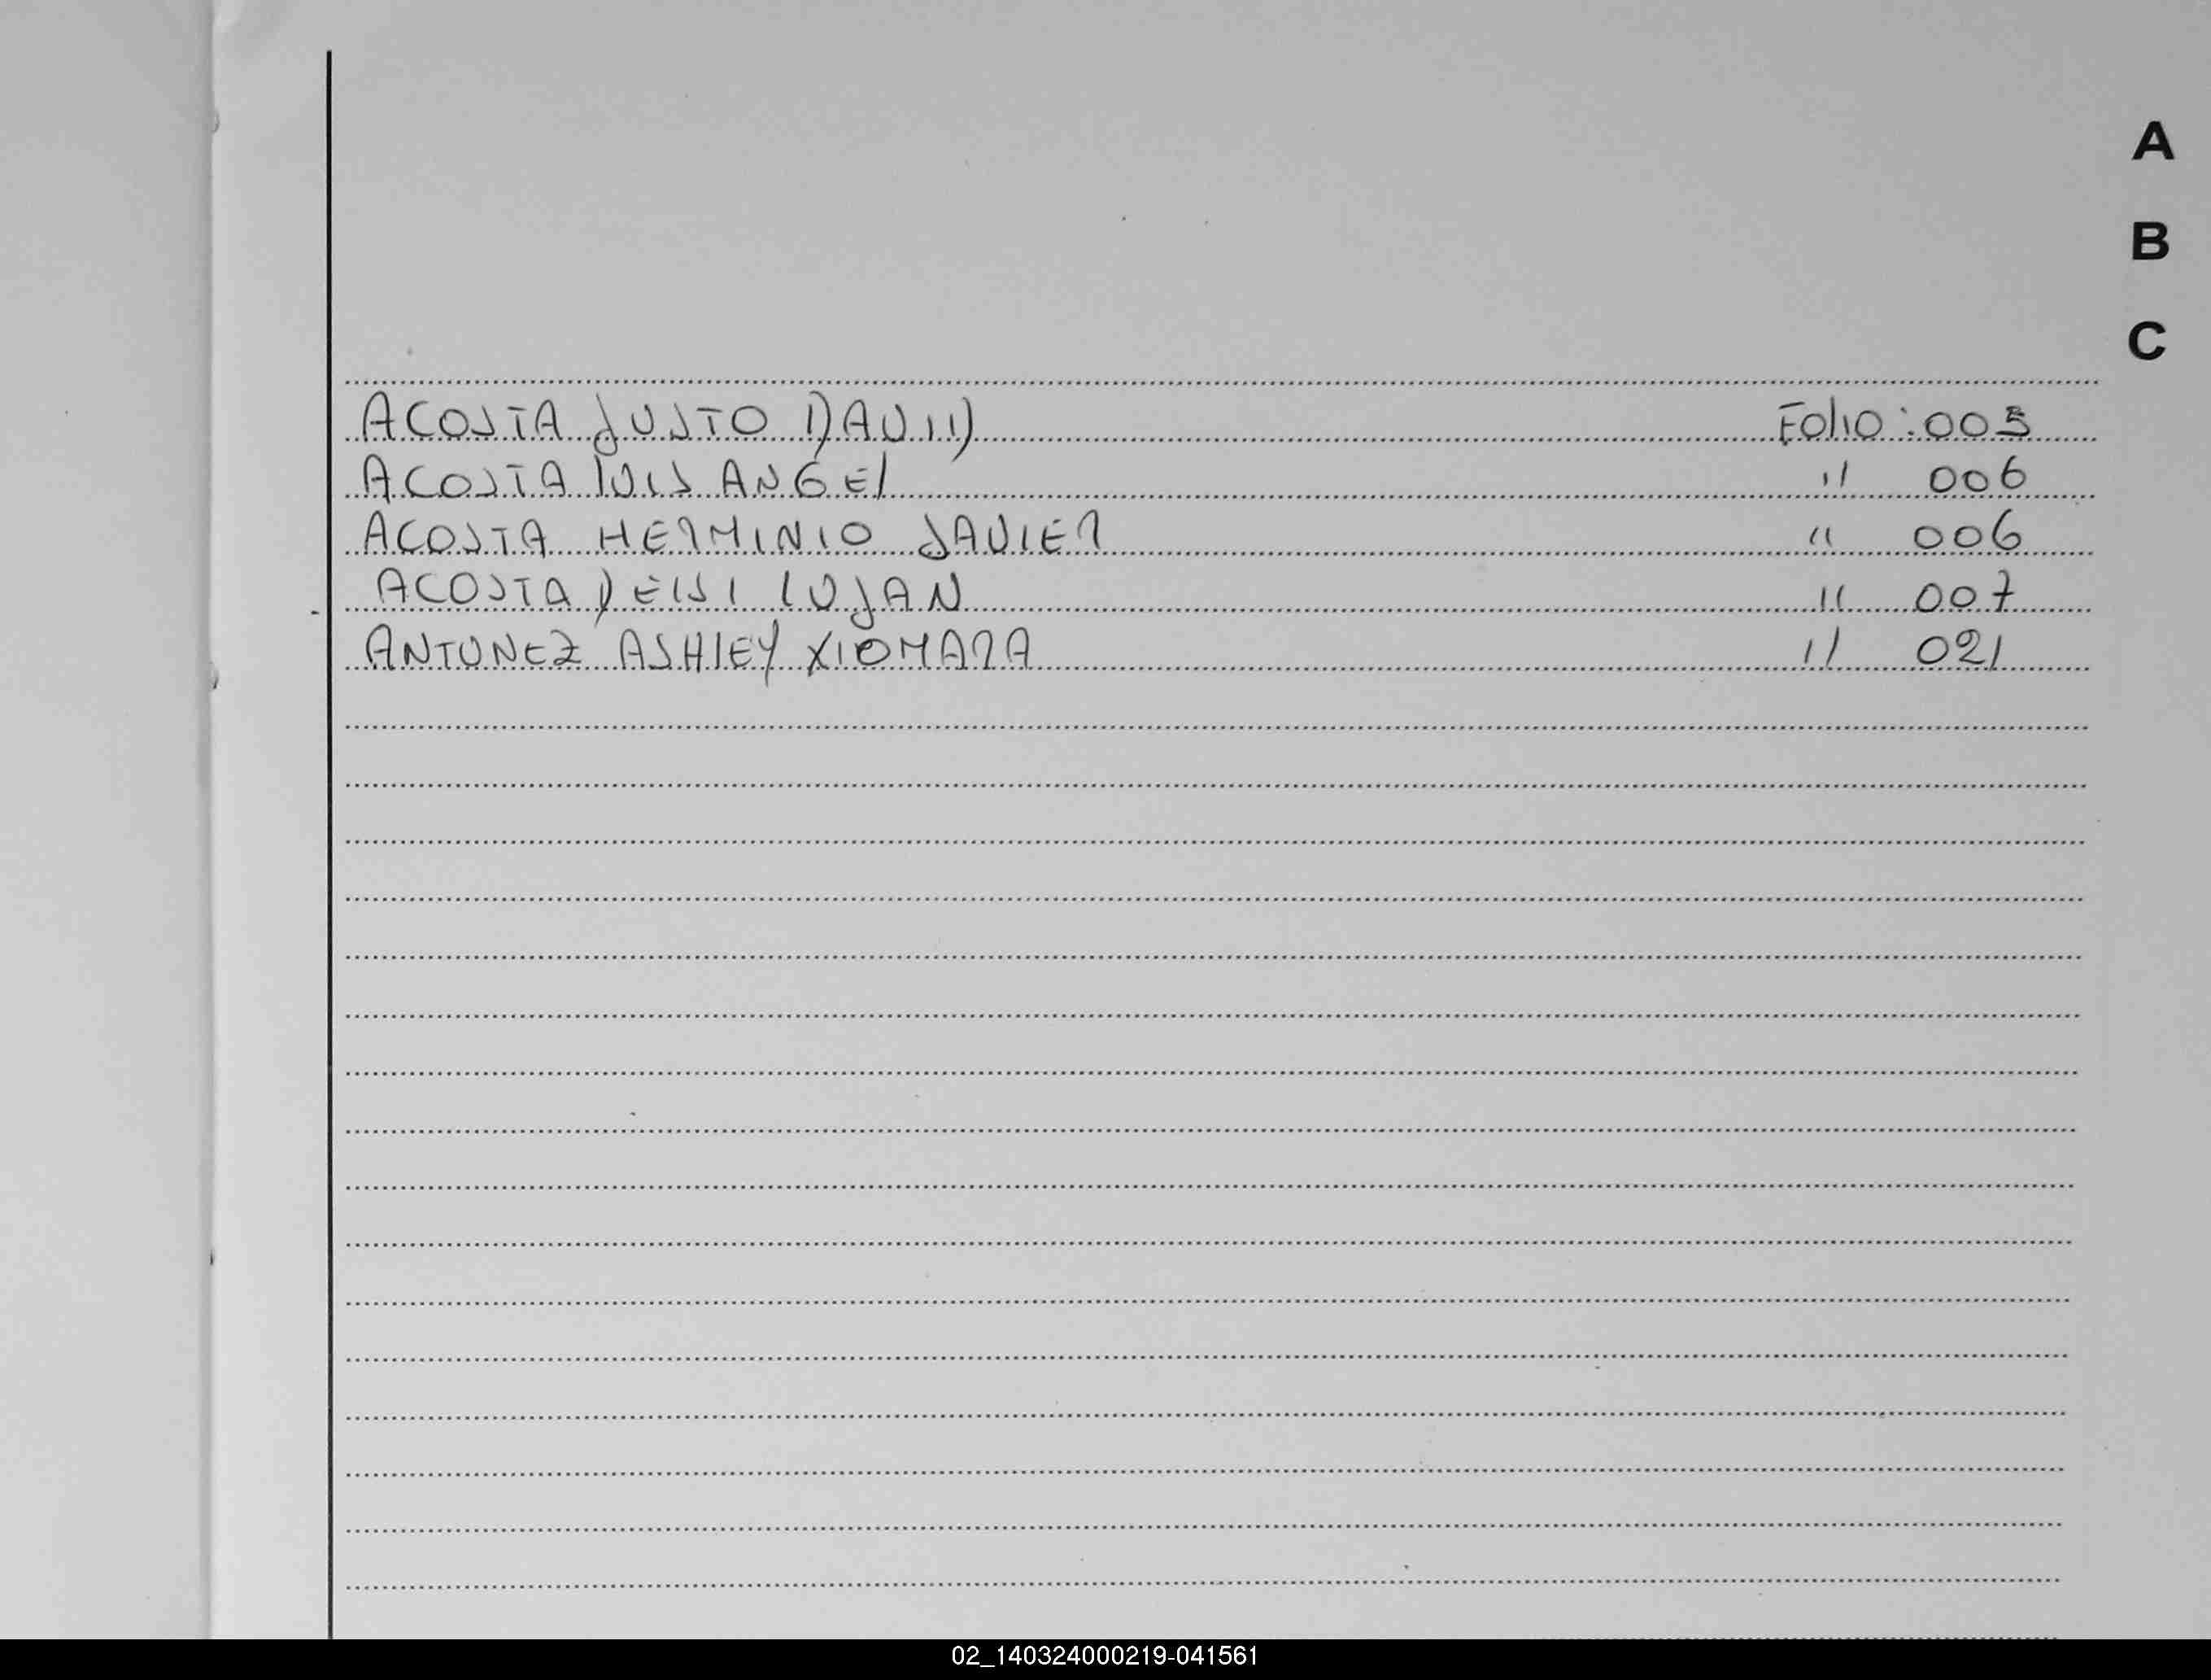 A
B
C
ACOSTA JUSTO DAVID Folio: 005
ACOSTA LUIS ANGEL " 006
ACOSTA HERMINIO JAVIER " 006
ACOSTA DEISI LUJAN " 007
ANTUNEZ ASHLEY XIOMARA " 021
02_140324000219-041561